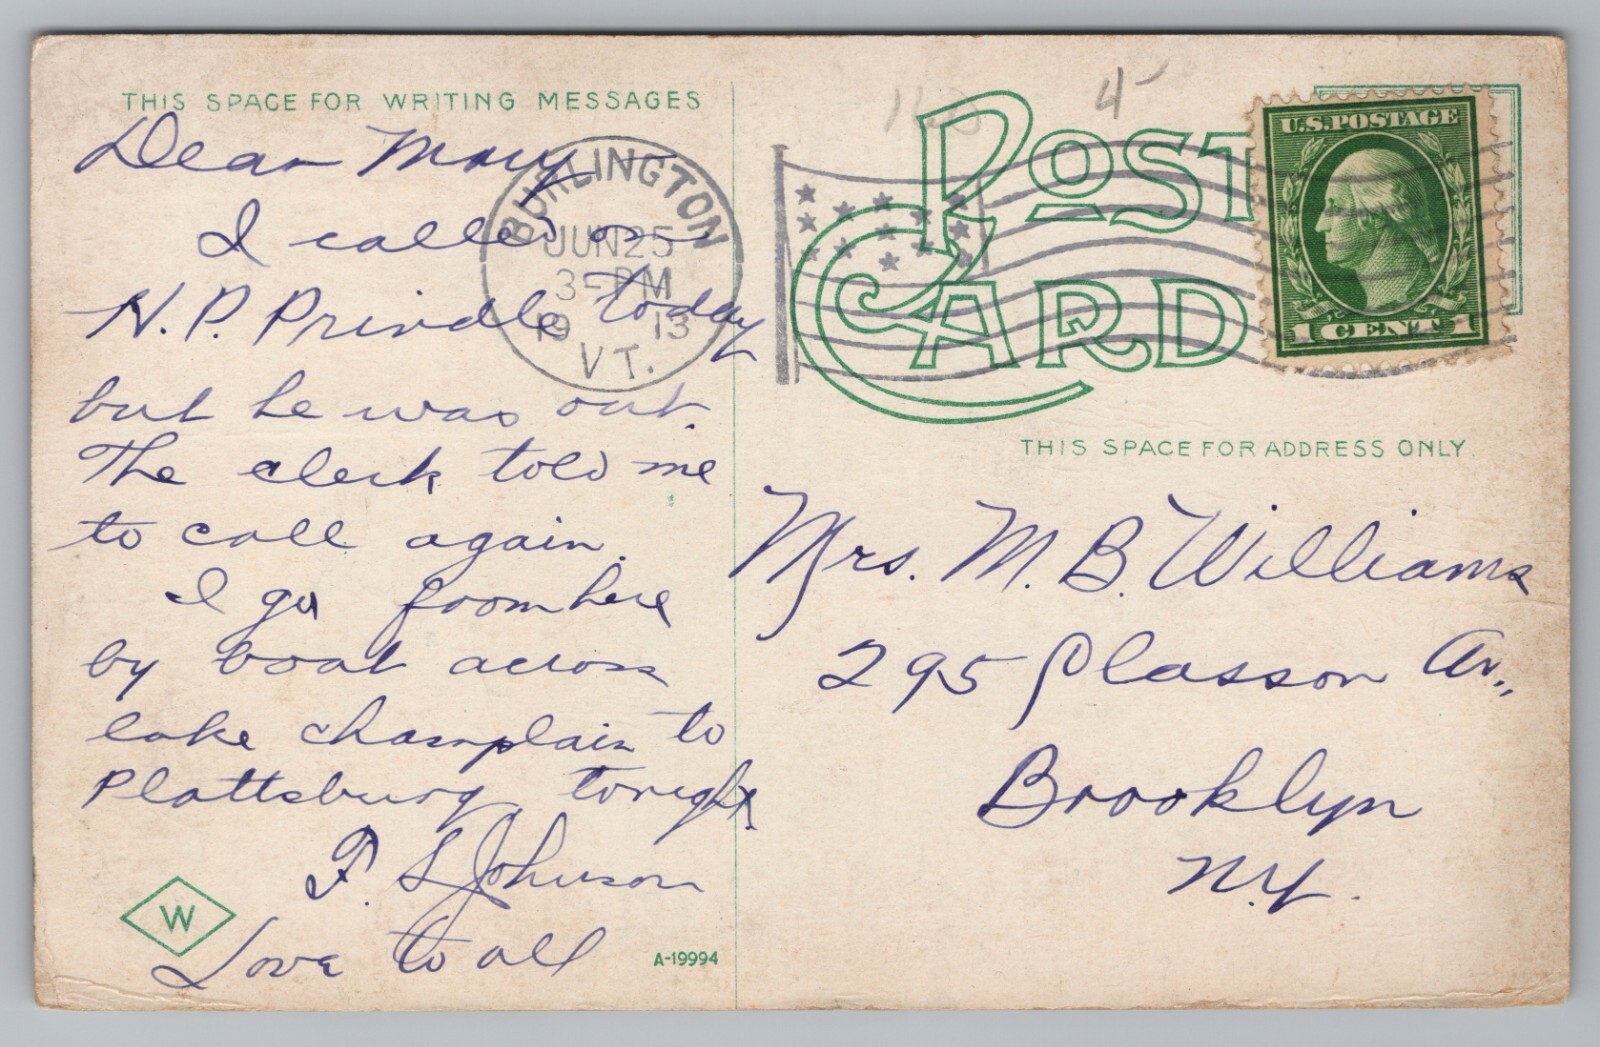 THIS SPACE FOR WRITING MESSAGES
Dear Mary
I called on
H. P. Prindle today
but he was out.
The clerk told me
to call again.
I go from here
by boat across
lake champlain to
Plattsburg tonight.
F. S Johnson
Love to all
W
A-19994
BURLINGTON
JUN 25
3-PM
19 13
VT.
4
POST
CARD
U.S.POSTAGE
1 CENT 1
THIS SPACE FOR ADDRESS ONLY
Mrs. M. B. Williams
295 Classon Av.,
Brooklyn
N.Y.